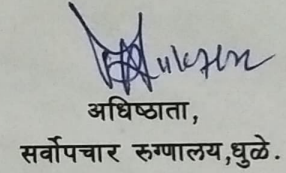 अधिष्ठाता,
सर्वोपचार रुग्णालय,धुळे.